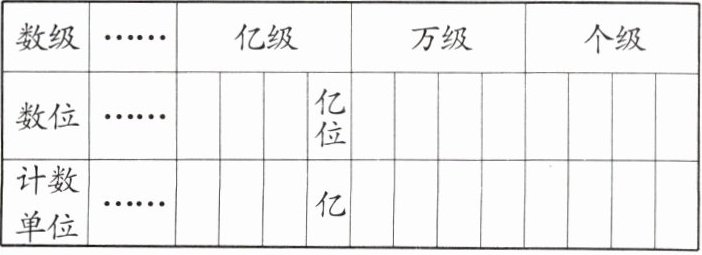 数级 …… 亿级 万级 个级
数位 …… 亿位
计数单位 …… 亿